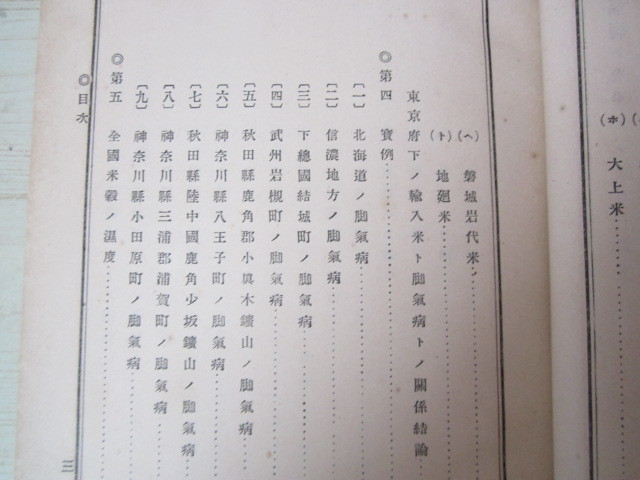 (ホ) 大上米……
(ヘ) 磐城岩代米……
(ト) 地廻米……
東京府下ノ輸入米ト脚氣病トノ關係結論……
◎第四 實例……
〔一〕 北海道ノ脚氣病……
〔二〕 信濃地方ノ脚氣病……
〔三〕 下總國結城町ノ脚氣病……
〔四〕 武州岩槻町ノ脚氣病……
〔五〕 秋田縣鹿角郡小眞木鑛山ノ脚氣病……
〔六〕 神奈川縣八王子町ノ脚氣病……
〔七〕 秋田縣陸中國鹿角少坂鑛山ノ脚氣病……
〔八〕 神奈川縣三浦郡浦賀町ノ脚氣病……
〔九〕 神奈川縣小田原町ノ脚氣病……
◎第五 全國米穀ノ濕度……
◎目次
三